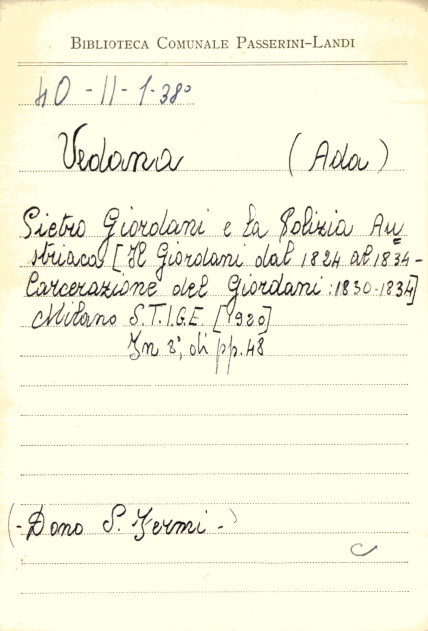 BIBLIOTECA COMUNALE PASSERINI-LANDI
40-II-1-38º
Vedana (Ada)
Pietro Giordani e la Polizia Au=
striaca [Il Giordani dal 1824 al 1834-
Carcerazione del Giordani: 1830-1834]
Milano S.T.I.G.E. [1920]
In 8º, di pp. 48
(-Dono S. Fermi-)
C